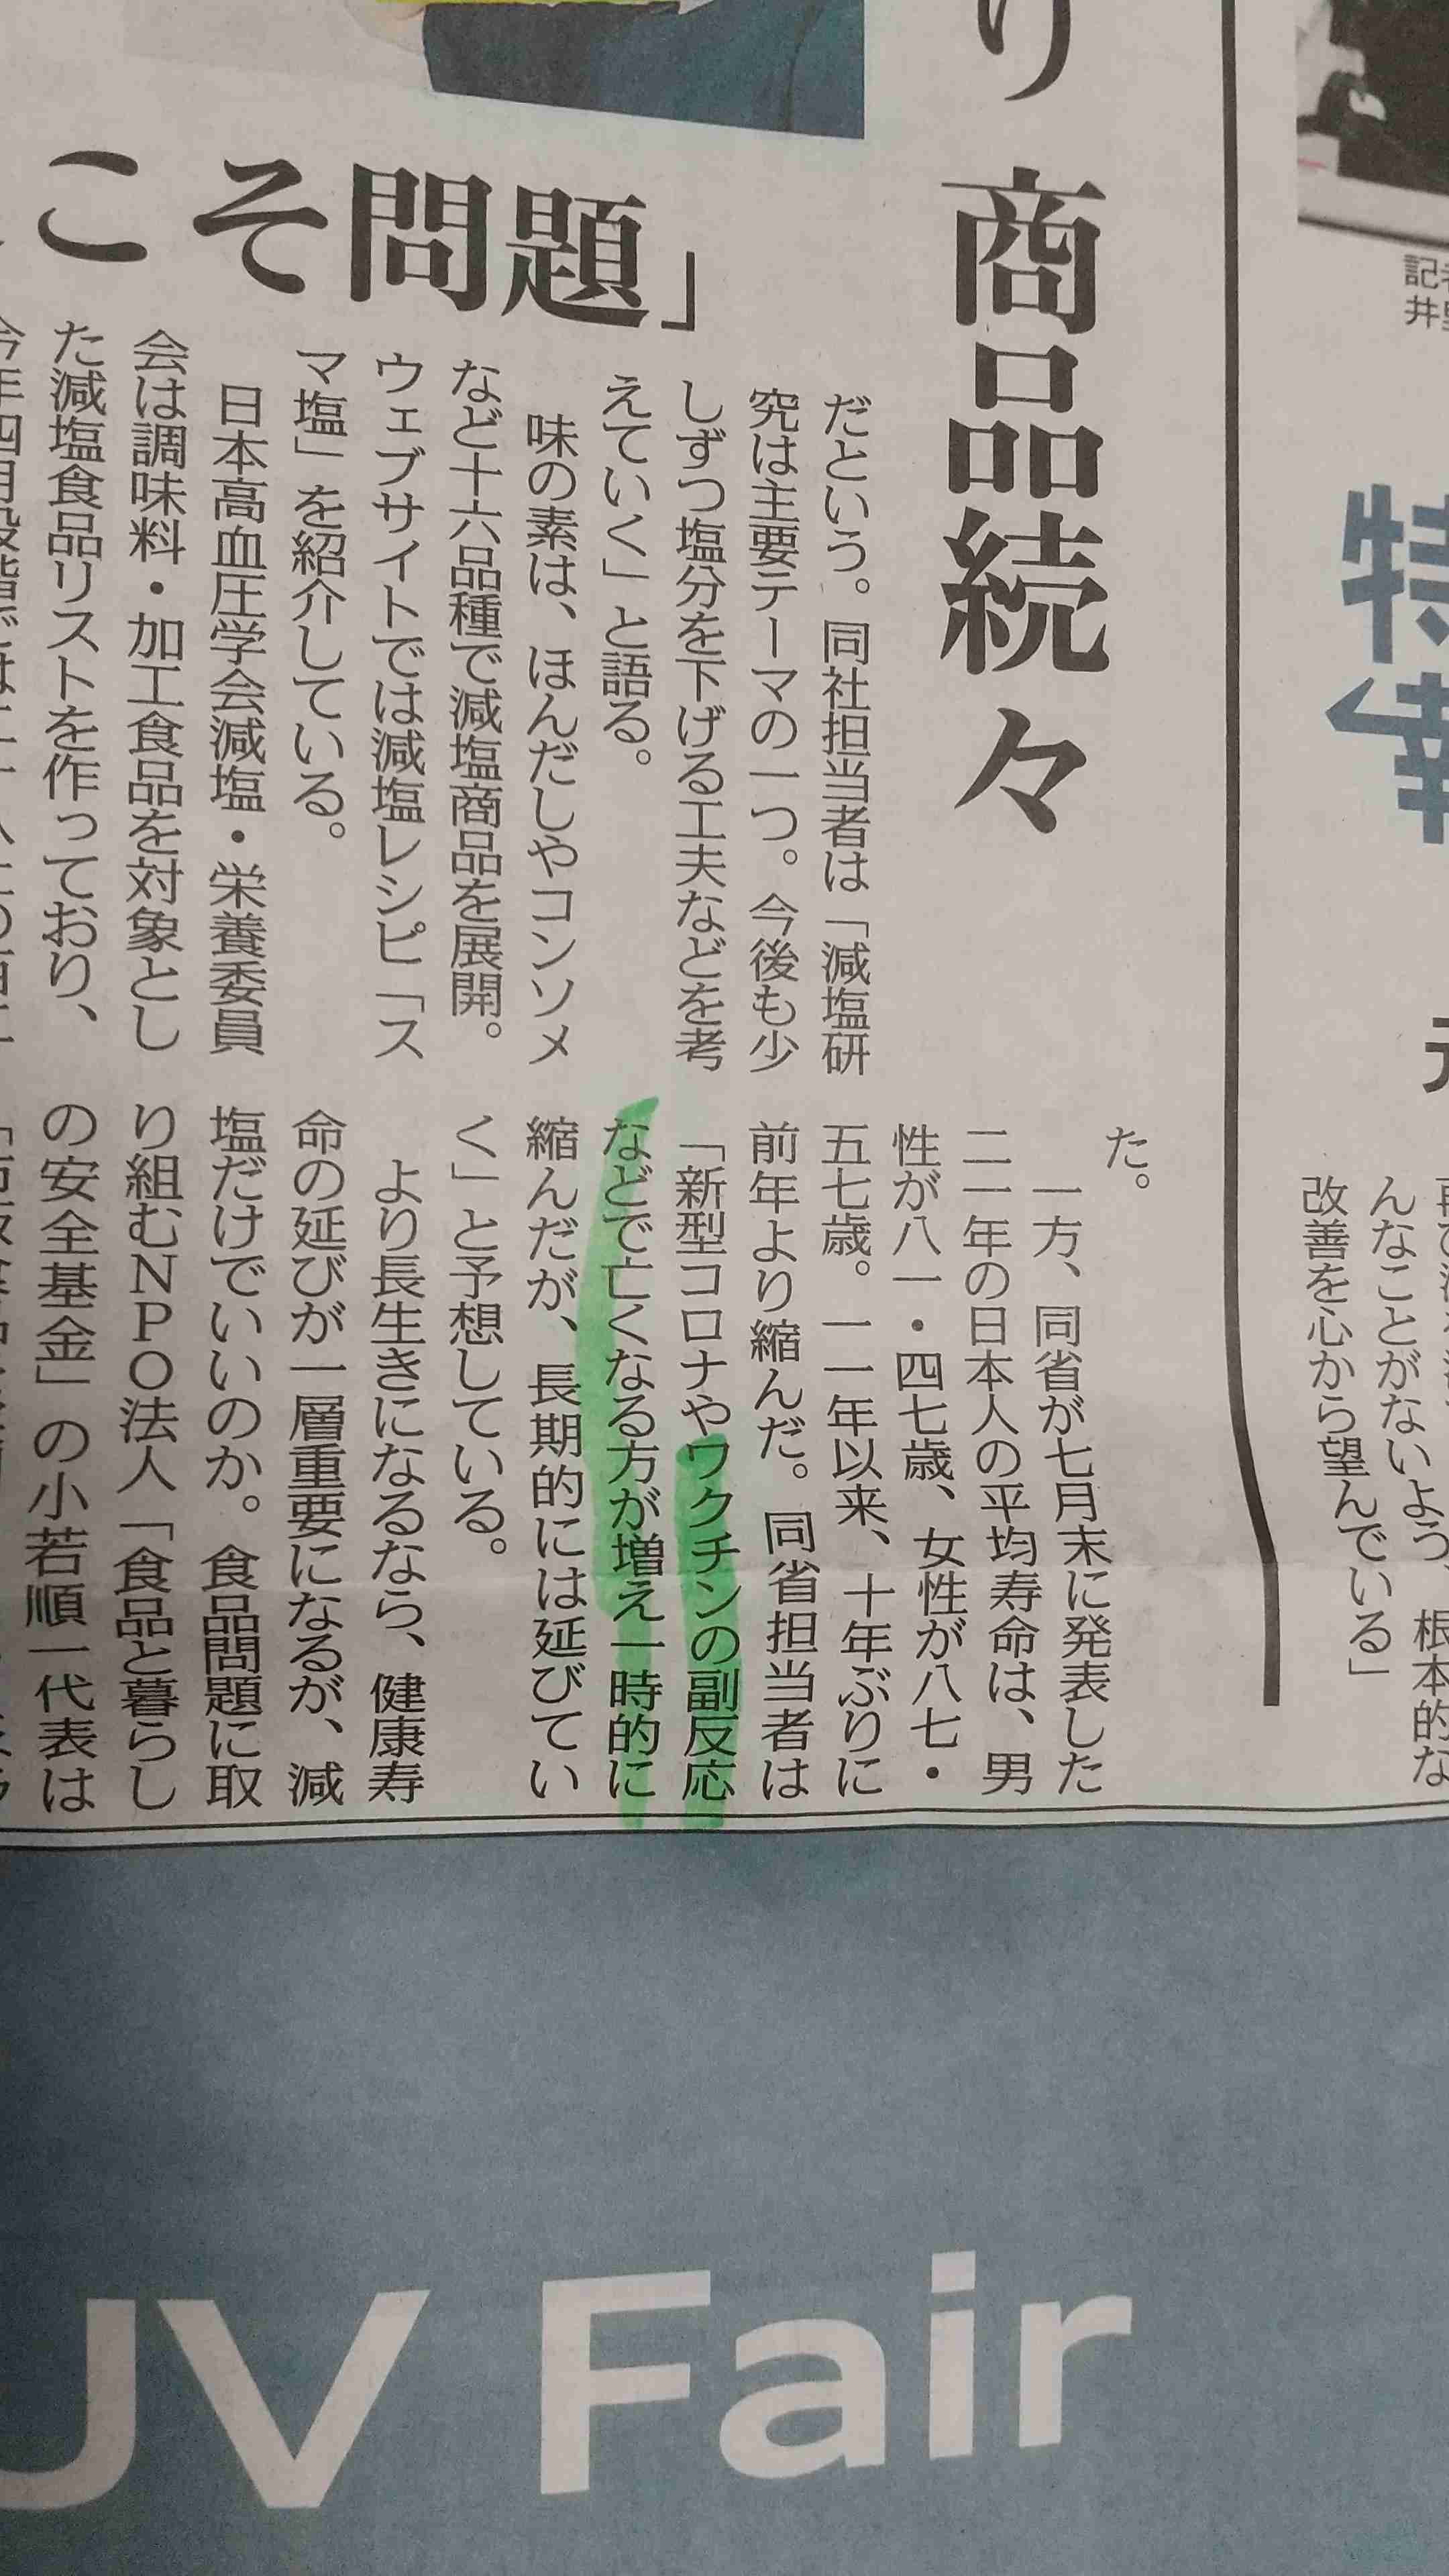 り
商品続々
こそ問題」
だという。同社担当者は「減塩研
究は主要テーマの一つ。今後も少
しずつ塩分を下げる工夫などを考
えていく」と語る。
味の素は、ほんだしやコンソメ
など十六品種で減塩商品を展開。
ウェブサイトでは減塩レシピ「ス
マ塩」を紹介している。
日本高血圧学会減塩・栄養委員
会は調味料・加工食品を対象とし
た減塩食品リストを作っており、
た。
一方、同省が七月末に発表した
二一年の日本人の平均寿命は、男
性が八一・四七歳、女性が八七・
五七歳。一一年以来、十年ぶりに
前年より縮んだ。同省担当者は
「新型コロナやワクチンの副反応
などで亡くなる方が増え一時的に
縮んだが、長期的には延びてい
く」と予想している。
より長生きになるなら、健康寿
命の延びが一層重要になるが、減
塩だけでいいのか。食品問題に取
り組むNPO法人「食品と暮らし
の安全基金」の小若順一代表は
根本的な
んなことがないよう、
改善を心から望んでいる」
特
UV Fair